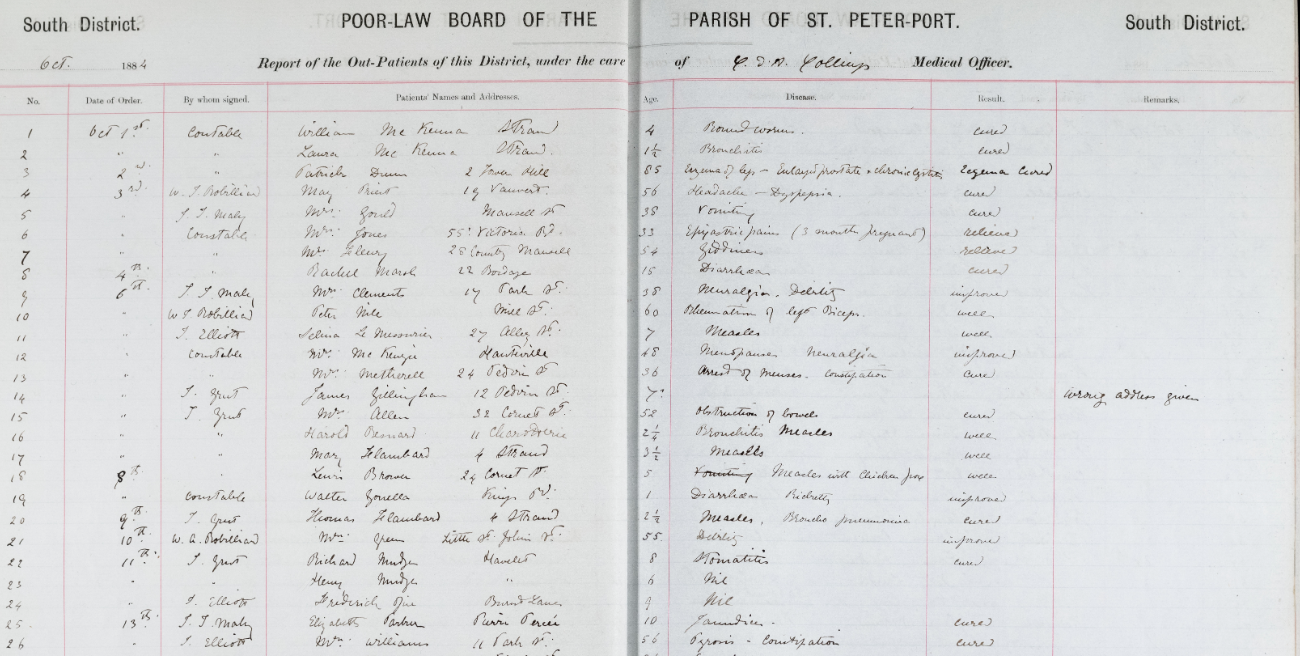 South District. POOR-LAW BOARD OF THE PARISH OF ST. PETER-PORT. South District.
Oct. 1884 Report of the Out-Patients of this District, under the care of Collings Medical Officer.
No. Date of Order. By whom signed. Patients' Names and Addresses. Age. Disease. Result. Remarks.
1 Oct 1st Constable William Mc Kenna Strand 4 Round worms. cured
2 " " Laura Mc Kenna Strand. 1½ Bronchitis cured
3 2nd " Patrick Dunn 2 Tower Hill 85 Eczema of legs - Enlarged prostate & chronic cystitis Eczema Cured
4 3rd W. T. Robilliard May 19 Vauvert. 56 Headache - Dyspepsia. cured
5 " Mrs. Gould Mansell St 38 Vomiting cured
6 " Constable Mrs. Jones 55 Victoria Rd. 33 Epigastric pains (3 months pregnant) relieved
7 " " Mrs. 28 Country Mansell 54 Giddiness relieved
8 4th " Rachel Marsh 22 Bordage 15 Diarrhœa cured
9 6th Mrs. Clements 17 Park St. 38 Neuralgia. Debility improved
10 " Robilliard Peter Mill St. 60 Rheumatism of left Biceps. well
11 " Elliott Selina Le Messurier 27 Allez St. 7 Measles well
12 " Constable Mrs. Mc Kenzie Hauteville 48 Menopause neuralgia improved
13 " " Mrs. Metherell 24 Pedvin St 36 Arrest of menses. Constipation cured
14 " Grut James Gillingham 12 Pedvin St. 7 wrong address given
15 " Grut Mrs. Allen 32 Cornet St. 52 Obstruction of bowels cured
16 " " Harold Besnard 11 Charroterie 2¼ Bronchitis Measles well
17 " " Mary Flambard 4 Strand 3½ Measles well
18 8th " Lewis Brown 29 Cornet St. 5 Vomiting Measles with Chicken pox well
19 " constable Walter Gonella Kings Rd. 1 Diarrhœa Ricketty improved
20 9th Grut Thomas Flambard 4 Strand 2½ Measles, Broncho pneumonia cured
21 10th W. A. Robilliard Mrs. Little St. John St. 55 Debility improved
22 11th Grut Richard Mudge Havelet 8 Stomatitis cured
23 " " Henry Mudge " 6 Nil
24 " Elliott Frederick Burnt Lane 9 Nil
25 13th Elizabeth Parker Pierre Percée 10 Jaundice. cured
26 " Elliott Mrs. Williams 11 Park St. 56 Pyrosis - Constipation cured